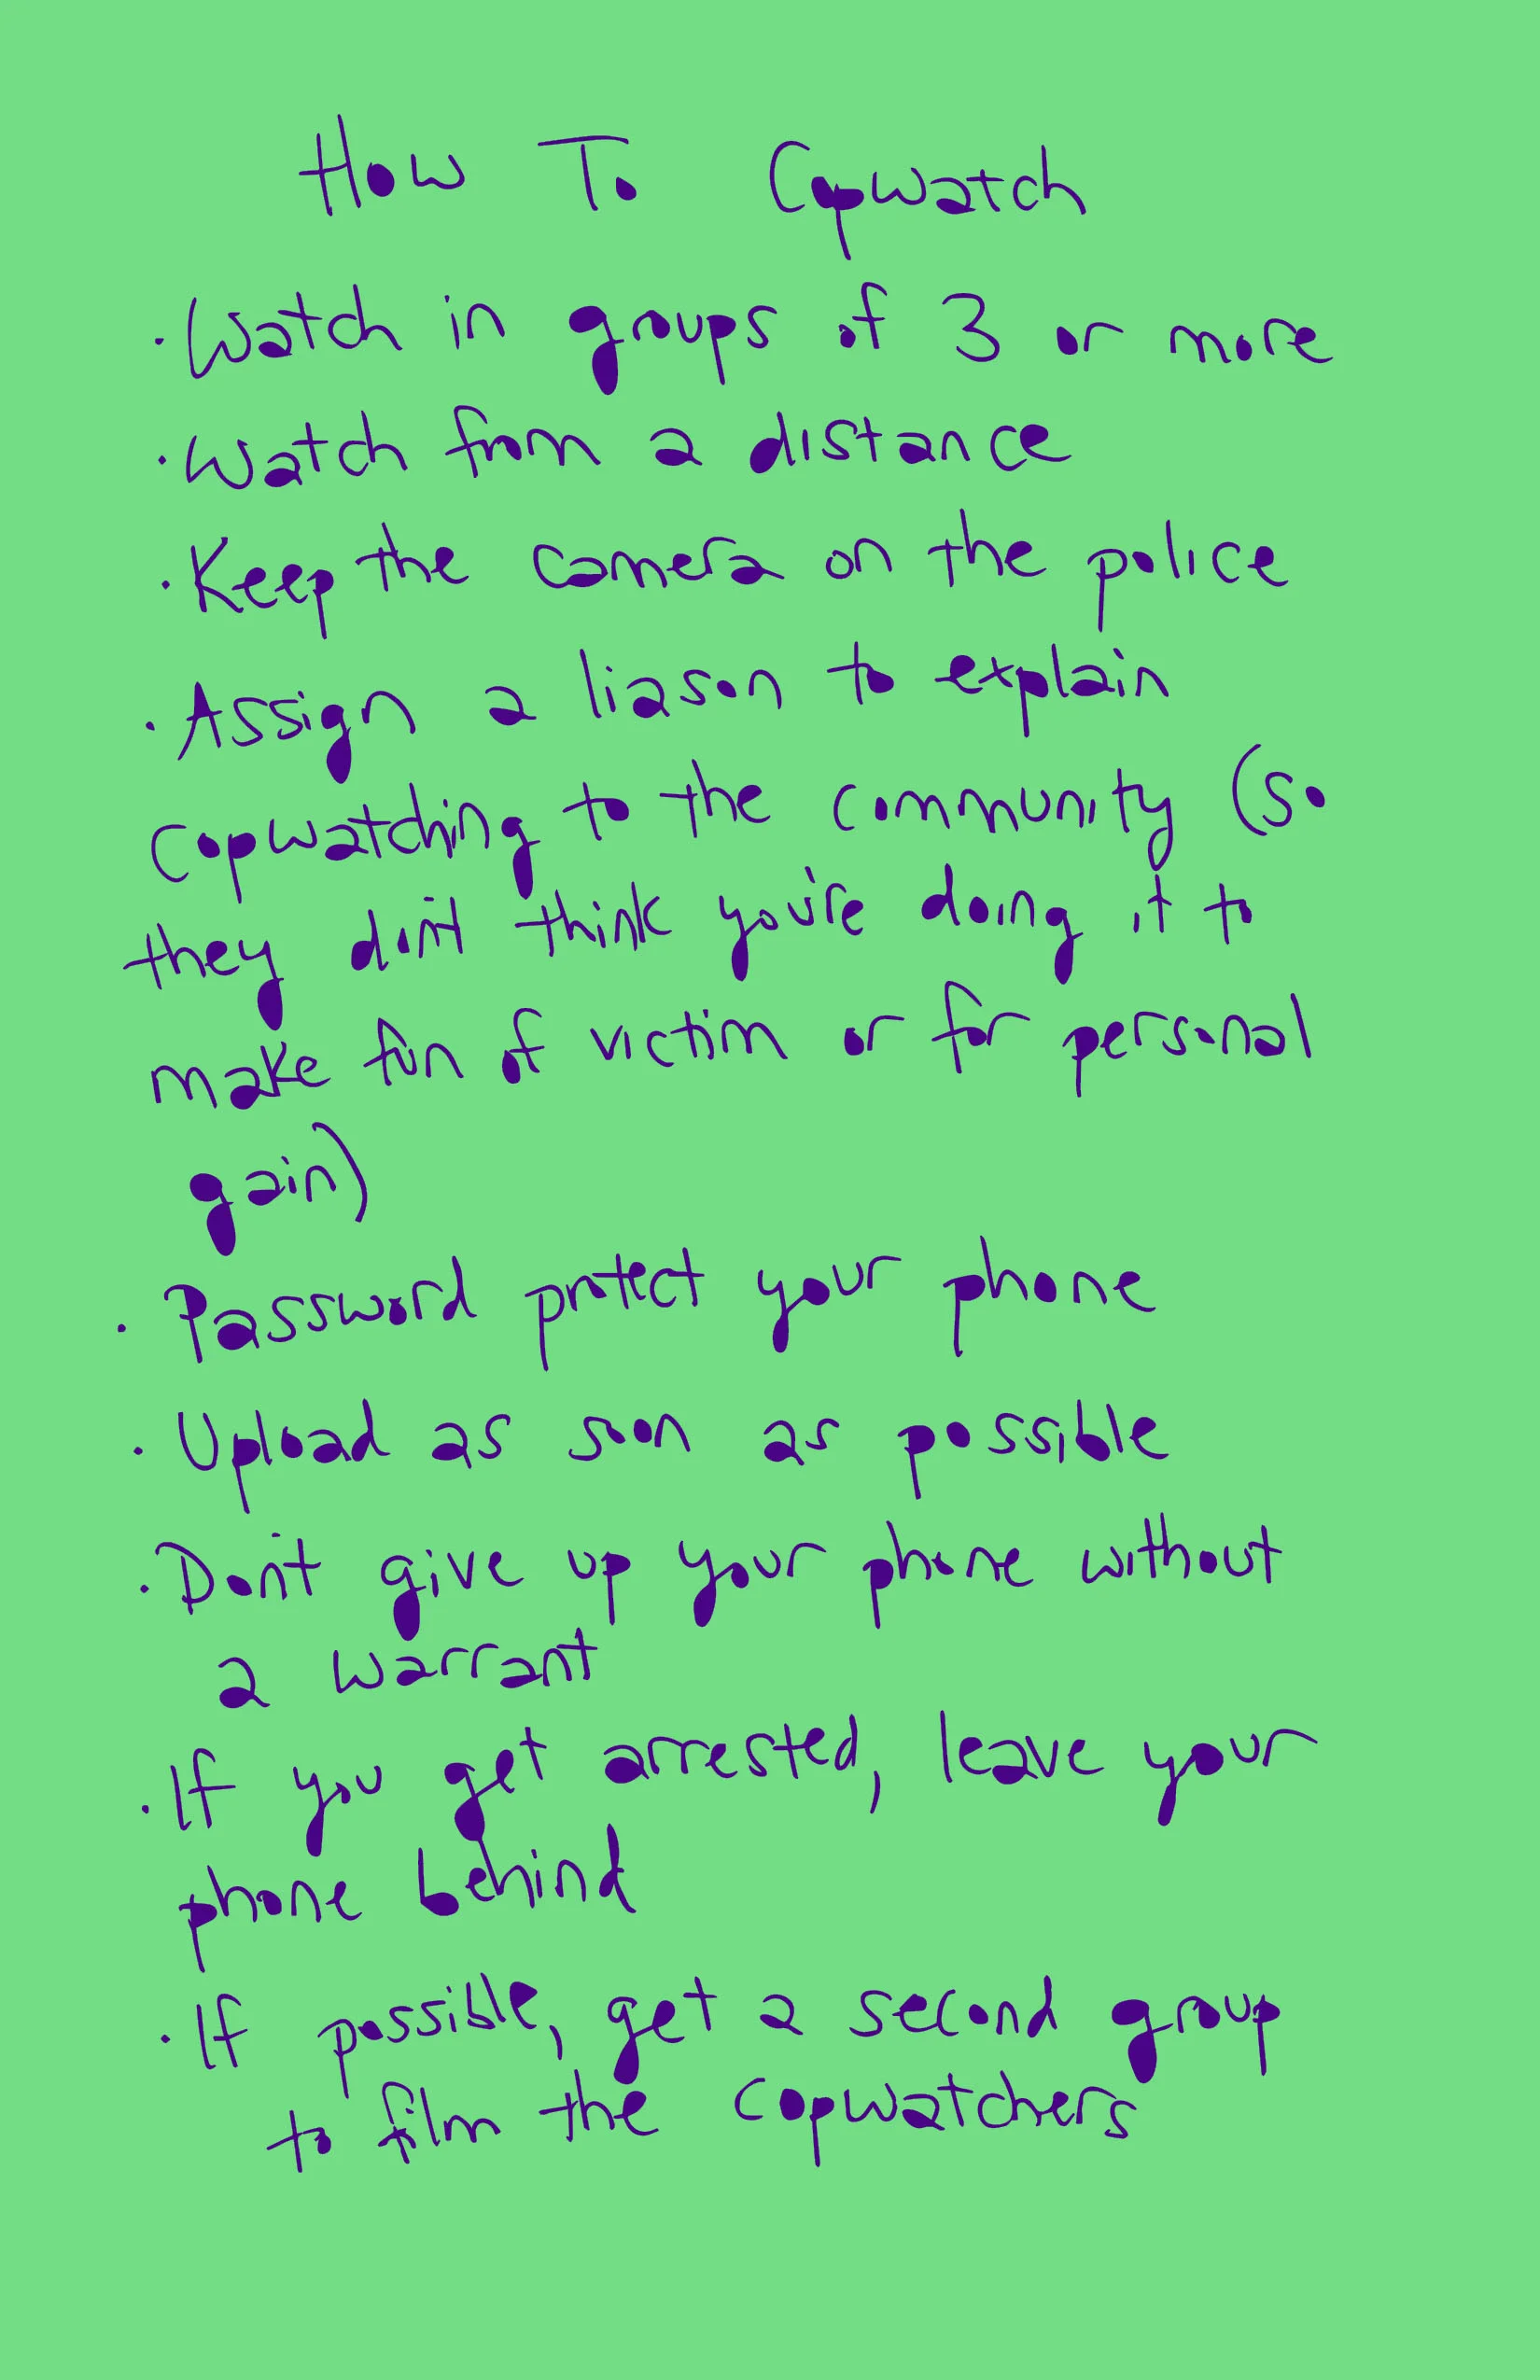 How To Copwatch
· Watch in groups of 3 or more
· Watch from a distance
· Keep the camera on the police
· Assign a liason to explain
copwatching to the community (so
they don't think you're doing it to
make fun of victim or for personal
gain)
· Password protect your phone
· Upload as soon as possible
· Don't give up your phone without
a warrant
· If you get arrested, leave your
phone behind
· If possible, get a second group
to film the copwatchers